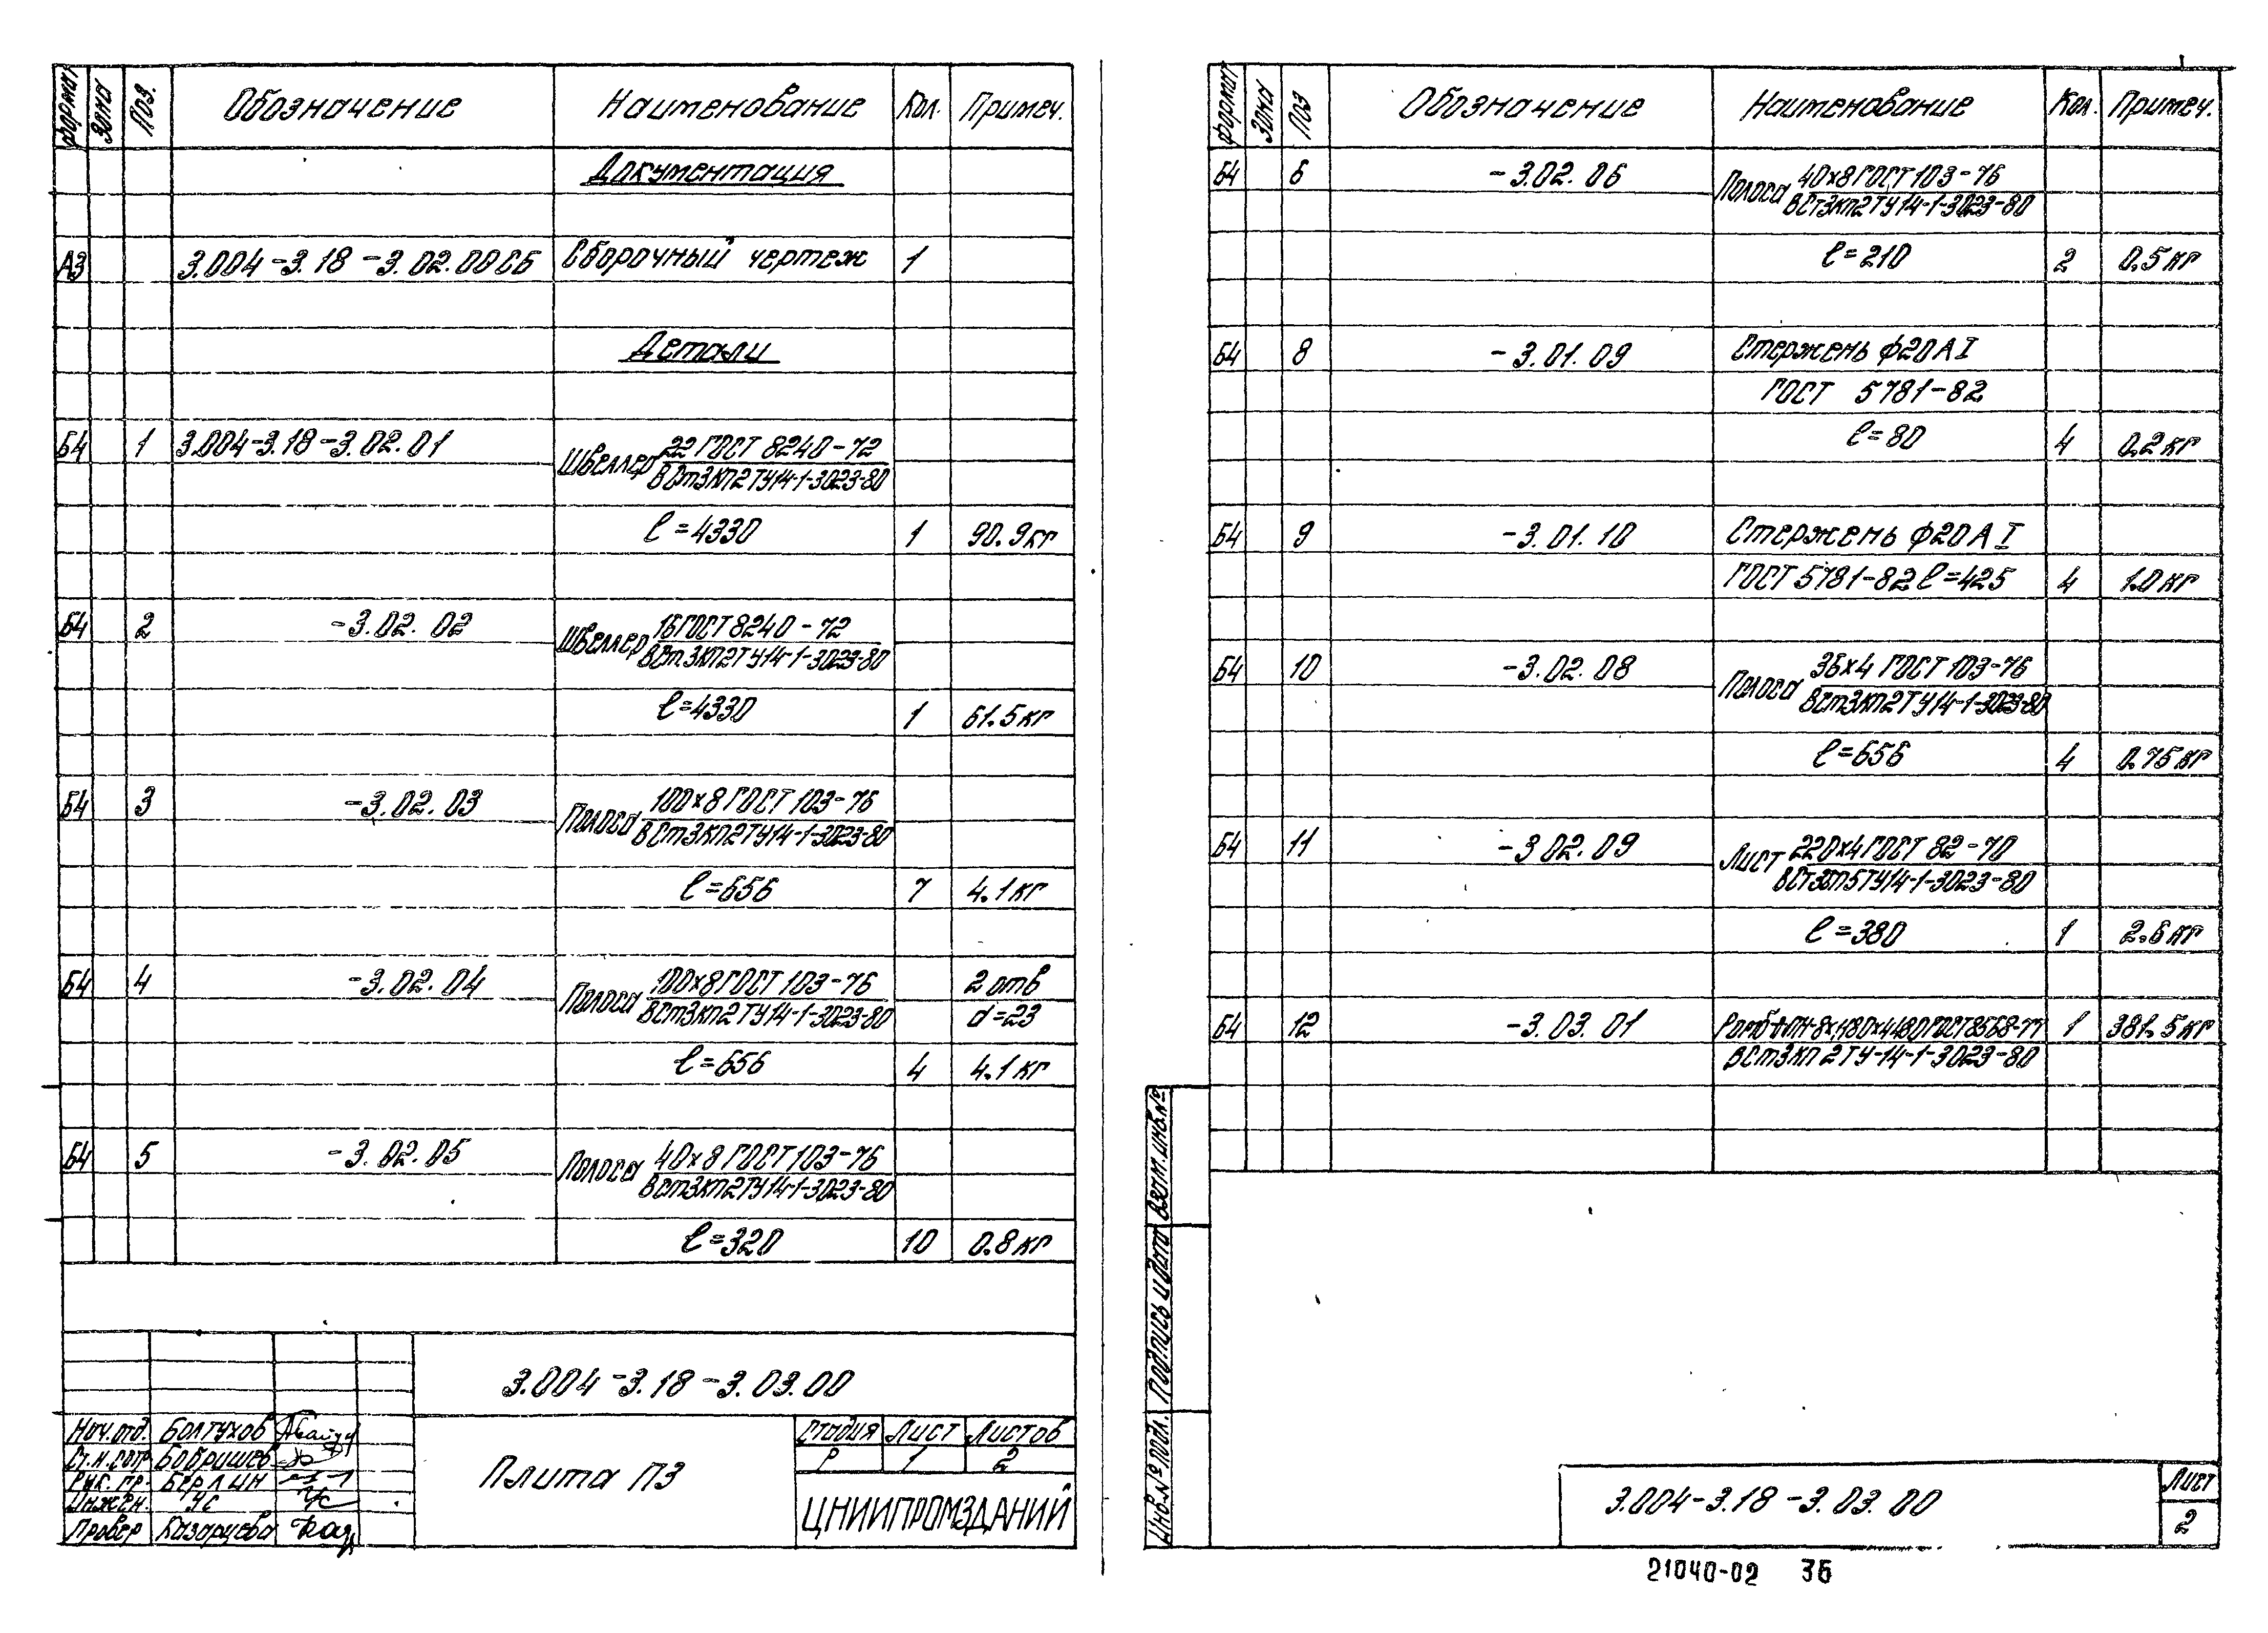 Формат Зона Поз. Обозначение Наименование Кол. Примеч.
Документация
А3 3.004-3.18-3.02.00СБ Сборочный чертеж 1
Детали
Б4 1 3.004-3.18-3.02.01 Швеллер 22 ГОСТ 8240-72
ВСт3кп2ТУ14-1-3023-80
l=4330 1 90.9кг
Б4 2 -3.02.02 Швеллер 16 ГОСТ 8240-72
ВСт3кп2ТУ14-1-3023-80
l=4330 1 61.5кг
Б4 3 -3.02.03 Полоса 100×8 ГОСТ 103-76
ВСт3кп2ТУ14-1-3023-80
l=656 7 4.1кг
Б4 4 -3.02.04 Полоса 100×8 ГОСТ 103-76 2 отв
ВСт3кп2ТУ14-1-3023-80 d=23
l=656 4 4.1кг
Б4 5 -3.02.05 Полоса 40×8 ГОСТ 103-76
ВСт3кп2ТУ14-1-3023-80
l=320 10 0.8кг
3.004-3.18-3.03.00
Нач.отд. Болтухов
Ст.н.сотр Бобришев
Рук. пр. Берлин
Инжен. Ус
Провер Казарцева
Плита П3
Стадия Лист Листов
Р 1 2
ЦНИИПРОМЗДАНИЙ
Формат Зона Поз Обозначение Наименование Кол. Примеч.
Б4 6 -3.02.06 Полоса 40×8 ГОСТ 103-76
ВСт3кп2ТУ14-1-3023-80
l=210 2 0.5кг
Б4 8 -3.01.09 Стержень ф20АI
ГОСТ 5781-82
l=80 4 0.2кг
Б4 9 -3.01.10 Стержень ф20АI
ГОСТ 5781-82 l=425 4 1.0кг
Б4 10 -3.02.08 Полоса 36×4 ГОСТ 103-76
ВСт3кп2ТУ14-1-3023-80
l=656 4 0.75кг
Б4 11 -3 02.09 Лист 220×4 ГОСТ 82-70
ТУ14-1-3023-80
l=380 1 2.6кг
Б4 12 -3.03.01 ГОСТ8568-77 1 381.5кг
ВСт3кп2ТУ-14-1-3023-80
Взам.инв.№
Подпись и дата
Инв.№ подл.
3.004-3.18-3.03.00
Лист
2
21040-02 36